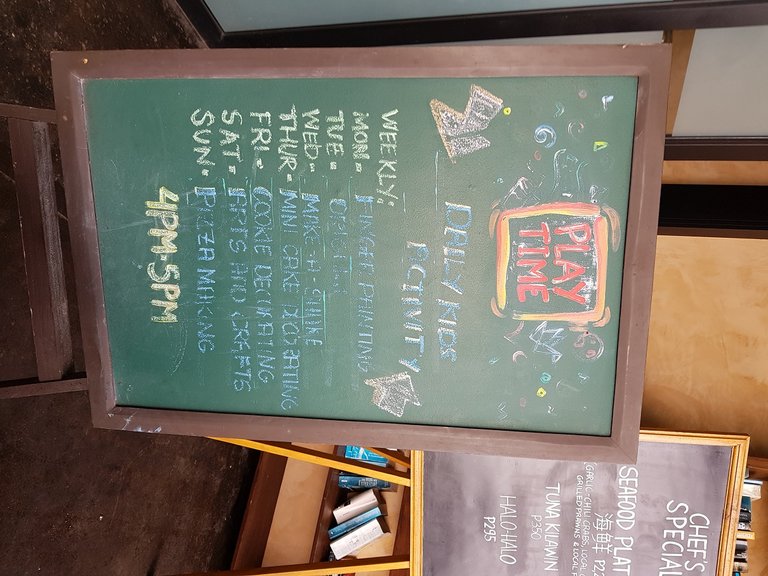 PLAY
TIME
DAILY KIDS
ACTIVITY
WEEKLY:
MON- FINGER PAINTING
TUE-
WED- MAKE-A-
THUR- MINI CAKE DECORATING
FRI- COOKIE DECORATING
SAT- ARTS AND CRAFTS
SUN- PIZZA MAKING
4PM-5PM
CHEF'S
SPECIAL
SEAFOOD PLAT
海鮮
GARLIC, CHILI CRABS, LOCAL
GRILLED PRAWNS & LOCAL
TUNA KILAWIN
P350
HALO HALO
P295